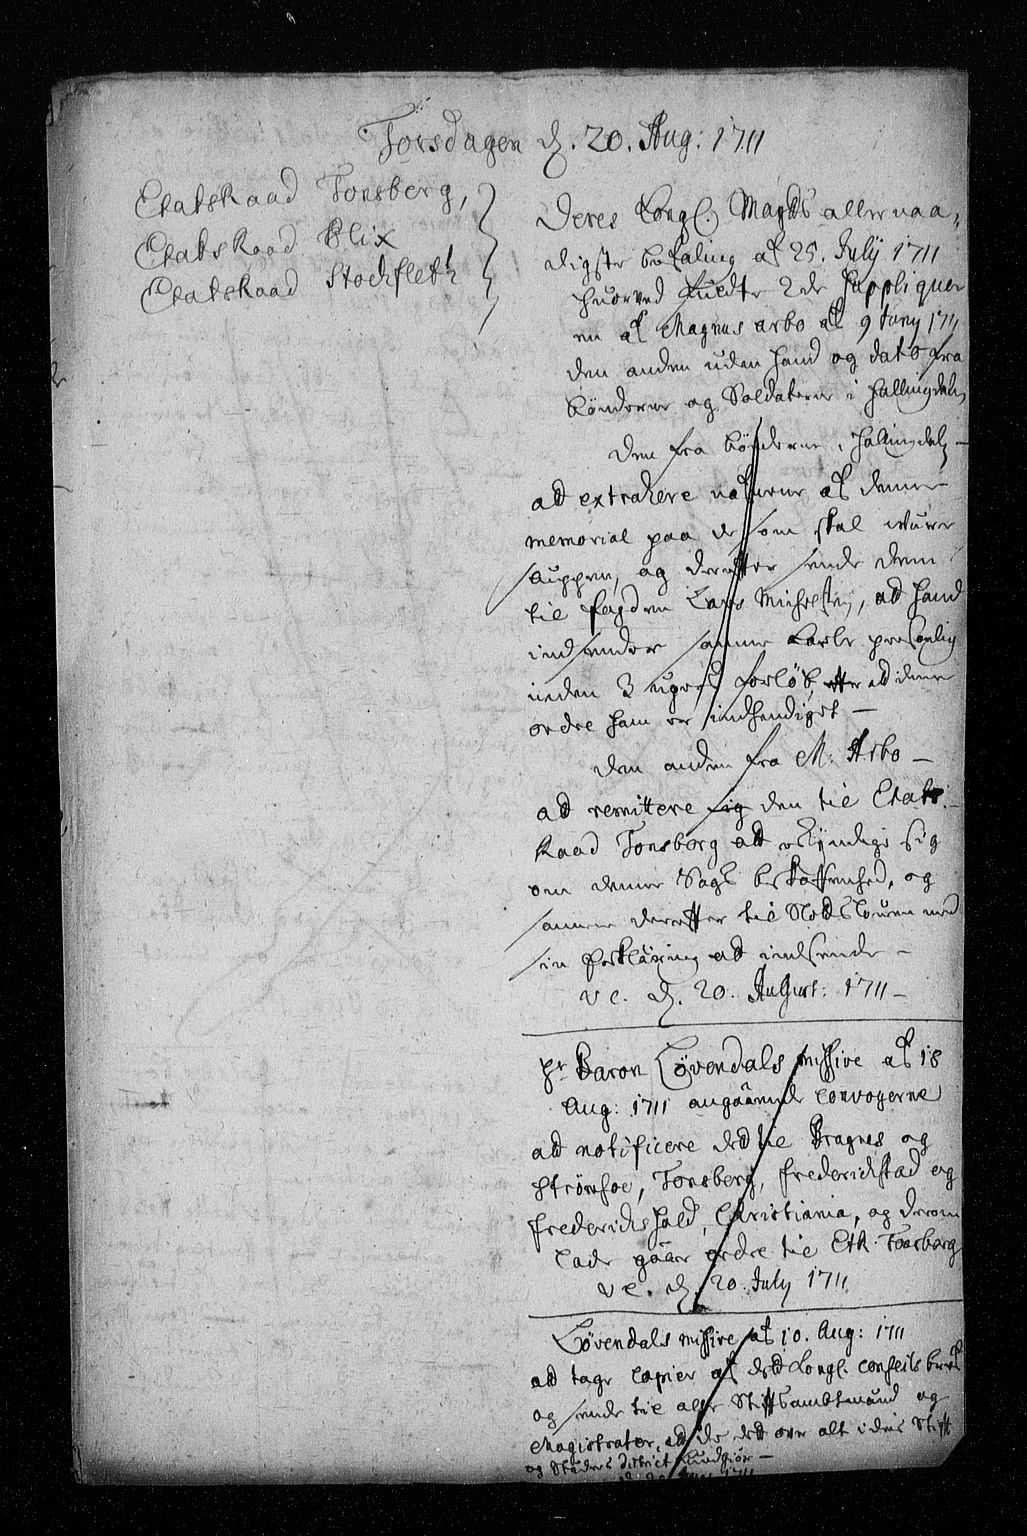 Torsdagen d. 20. Aug: 1711
Etatsraad Tonsberg,
Etatsraad Blix
Etatsraad Stochfleth
Deres Kongl. Mayts allernaa-
digste befaling af 25. July 1711
huorved fuldte 2de suppliquer
en af Magnus arbo af 9 Juny 1711
den anden uden hand og dato fra
bønderne og Soldaterne i Hallingdal,
den fra bønderne i Hallingdal –
ad extrahere nafnene af denne
memorial paa de som skal være
, og derefter sende dem
til fogden Lars Michelsen, ad hand
indsender samme Karle personlig
inden 3 ugers forløb, efter ad denne
ordre ham er indhendiget –
den anden fra M. Arbo –
ad remittere sig den til Etats-
Raad Tonsberg ad økyndige sig
om denne Sags beskaffenhed, og
samme derefter til Slodtsloven med
sin forklaring ad indsende –
d. 20. August: 1711 –
hr Baron Løvendals missive af 18
Aug: 1711 angaaende convoyerne
ad notificere ded til Bragnes og
Strømsøe, Tonsberg, friderichstad og
friderichshald, Christiania, og derom
lade gaar ordre til Etr. Tonsberg
d. 20. July 1711
Løvendals missive af 10. Aug: 1711
ad tage copier af ded Kongl. conseils bref
og sende til alle Stiftsambtmænd og
Magistrater, ad de ded over alt i deris Stift
og Stæders district kundgiør –
1711